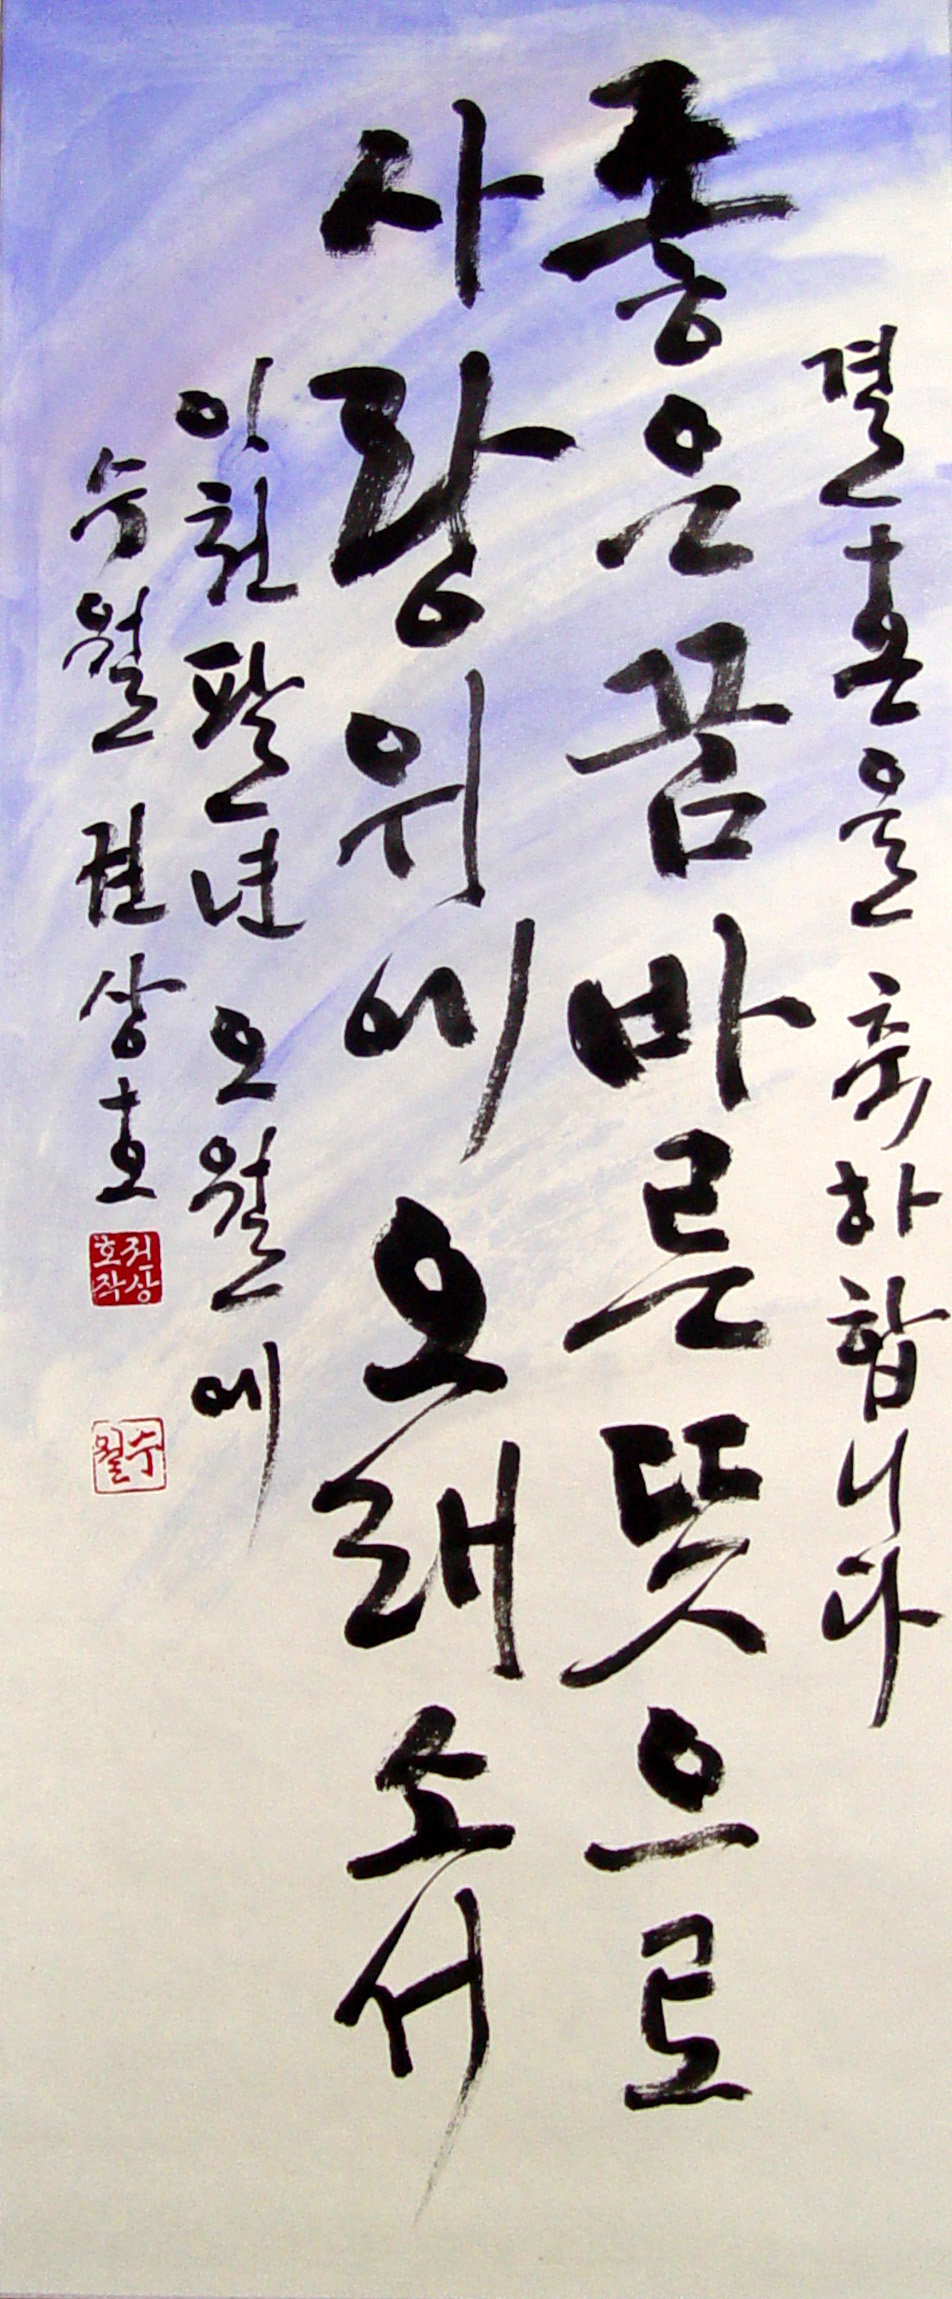 결혼을 축하합니다
좋은꿈바른뜻으로
사랑위에오래소서
이천팔년 오월에
수월 권상호
권상
호작
수월